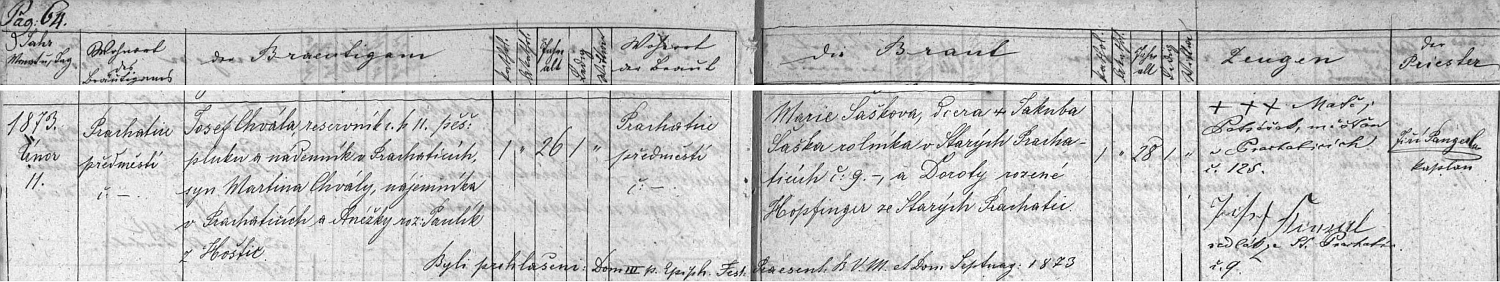 Pag: 64.
Jahr Monat u. Tag
Wohnort des Bräutigams
der Braeutigam
Kathol.
Jahre alt
ledig
Wittwer
Wohnort der Braut
die Braut
Kathol.
Jahre alt
ledig
Wittwe
Zeugen
der Priester
1873.
Únor
11.
Prachatic
předměstí
č: –
Josef Chvála reservník c. k. 11. pěš:
pluku a nádenník v Prachaticích,
syn Martina Chvály, nájemníka
v Prachaticích a Anežky roz: Paulik
z Hoštic.
1 " 26 1 "
Prachatic
předměstí
č: –
Marie Šaškova, dcera + Jakuba
Šaška rolníka v Starých Pracha-
ticích č: 9. –, a Doroty rozené
Höpfinger ze Starých Prachatic
1 " 28 1 "
+ + + Matěj
měšťan
v Prachaticích
č. 125.
Josef
sedlák, z St. Prachatic
č. 9.
Jiří
kaplan
Byli prohlášeni: Dom III p. Epiph. Fest. Praesent. B. V. M. et Dom. Septuag: 1873